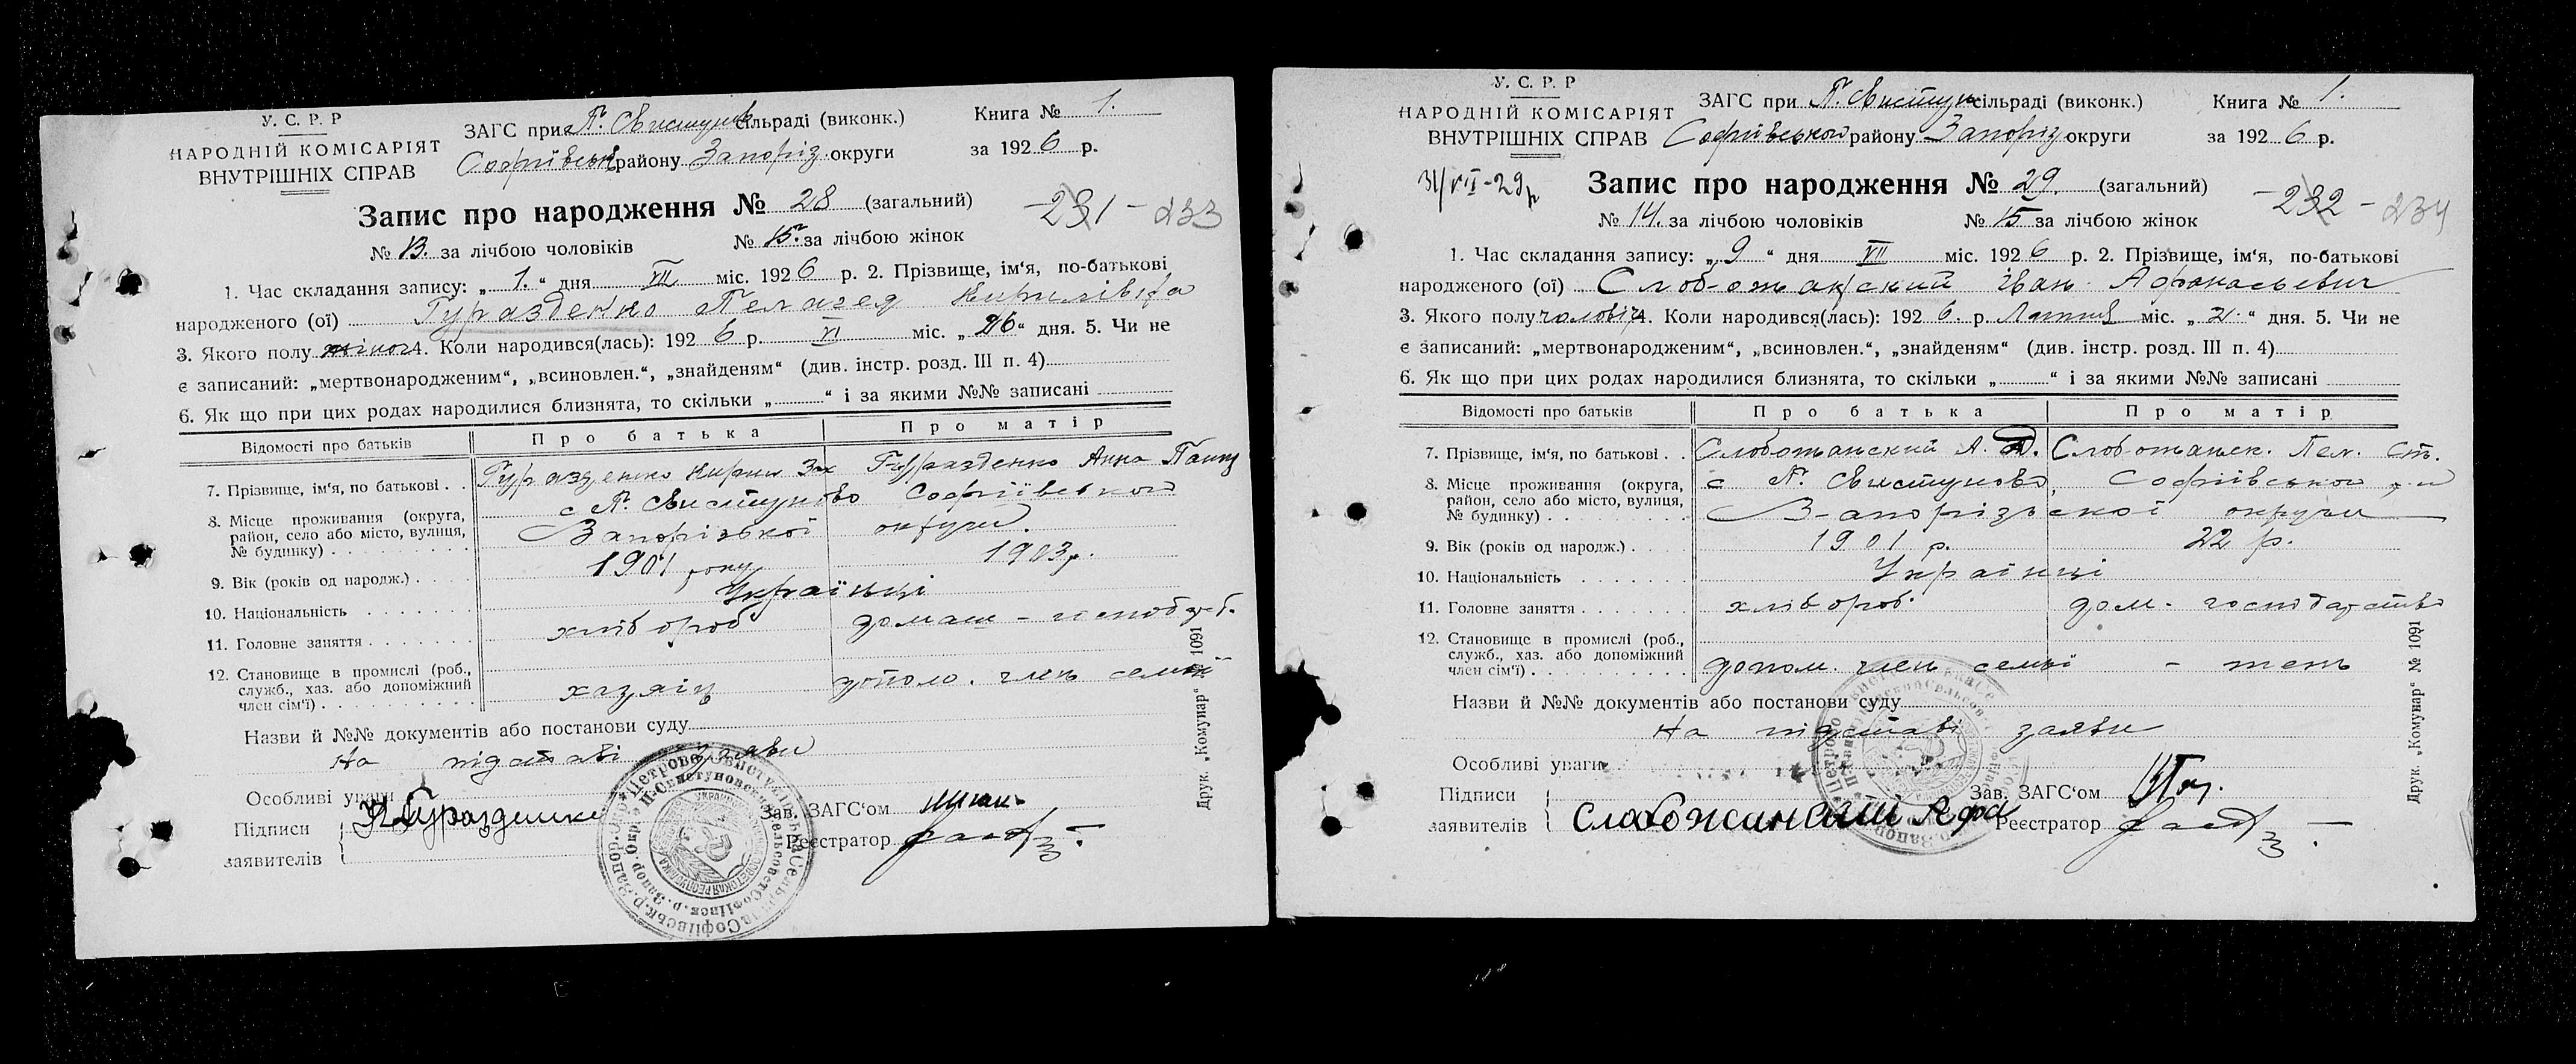 У. С. Р. Р
НАРОДНІЙ КОМІСАРІЯТ
ВНУТРІШНІХ СПРАВ
ЗАГС при П. Свистунів сільраді (виконк.)
Софіївськ району Запоріз. округи
Книга № 1.
за 1926 р.
Запис про народження № 28 (загальний)
-231- 233
№ 13. за лічбою чоловіків № 15. за лічбою жінок
1. Час складання запису: „1.“ дня VII міс. 1926 р. 2. Прізвище, ім‘я, по-батькові
народженого (ої) Гуразденко Пелагея Кирилівна
3. Якого полу жіноч 4. Коли народився(лась): 1926 р. VI міс. „26“ дня. 5. Чи не
є записаний: „мертвонародженим“, „всиновлен.“, „знайденям“ (див. інстр. розд. III п. 4)
6. Як що при цих родах народилися близнята, то скільки „ “ і за якими №№ записані
Відомості про батьків Про батька Про матір
7. Прізвище, ім‘я, по батькові . . Гуразденко Кирил Зах Гуразденко Анна
8. Місце проживання (округа,
район, село або місто, вулиця,
№ будинку) . . . . . . . . .
с П. Свистуново Софіївського
Запорізької округи.
9. Вік (років од народж.) . . . . 1901 року 1903 р.
10. Національність . . . . . . . Українці
11. Головне заняття . . . . . . . хлібороб домаш -
12. Становище в промислі (роб.,
служб., хаз. або допоміжний
член сім‘ї) . . . . . . . . . .
хазяїн допомо. член семьї
Назви й №№ документів або постанови суду
На підставі заяви
Особливі уваги
Підписи
заявителів
К Гуразденко
Зав. ЗАГС‘ом
Реєстратор
Друк. „Комунар“ № 1091
У. С. Р. Р
НАРОДНІЙ КОМІСАРІЯТ
ВНУТРІШНІХ СПРАВ
ЗАГС при П. Свистун сільраді (виконк.)
Софіївськой району Запоріз округи
Книга № 1.
за 1926 р.
31/VII-29р
Запис про народження № 29. (загальний)
-232- 234
№ 14. за лічбою чоловіків № 15 за лічбою жінок
1. Час складання запису: „9“ дня VII міс. 1926 р. 2. Прізвище, ім‘я, по-батькові
народженого (ої) Слобожанский Іван Афонасьевич
3. Якого полу чоловіч 4. Коли народився(лась): 1926. р. Липня міс. „2.“ дня. 5. Чи не
є записаний: „мертвонародженим“, „всиновлен.“, „знайденям“ (див. інстр. розд. III п. 4)
6. Як що при цих родах народилися близнята, то скільки „ “ і за якими №№ записані
Відомості про батьків Про батька Про матір
7. Прізвище, ім‘я, по батькові . . Слобожанский А. Слобожанск. Пел. Ст.
8. Місце проживання (округа,
район, село або місто, вулиця,
№ будинку) . . . . . . . . .
с П. Свистуново, Софіївськой р-н
Запорізької округи
9. Вік (років од народж.) . . . . 1901 р. 22 р.
10. Національність . . . . . . . Українці
11. Головне заняття . . . . . . . хлібороб. дом. господарство
12. Становище в промислі (роб.,
служб., хаз. або допоміжний
член сім‘ї) . . . . . . . . . .
допом. член семьї - тень
Назви й №№ документів або постанови суду
На підставі заяви
Особливі уваги
Підписи
заявителів
Слобожинский Афа
Зав. ЗАГС‘ом
Реєстратор
Друк. „Комунар“ № 1091